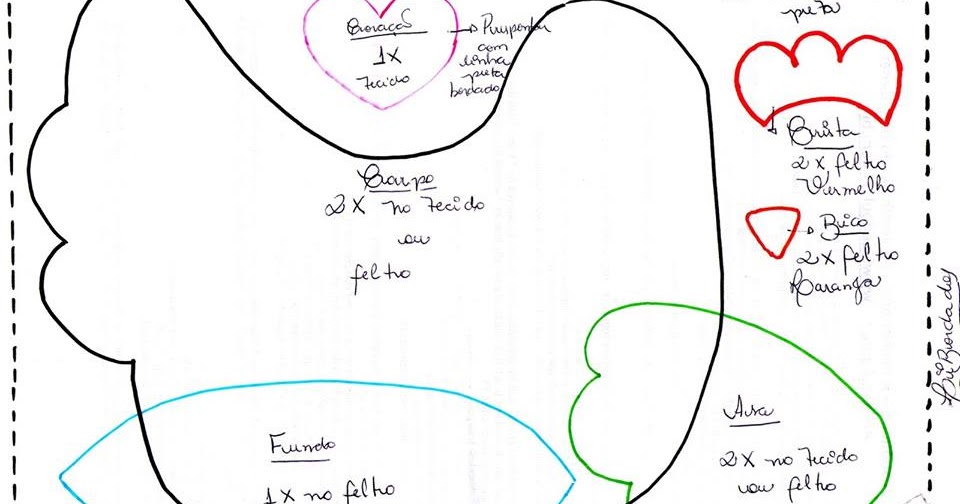 Coração
1X
Tecido
→ Pespontar
com
linha
preta
bordado
preta
Crista
2 X feltro
Vermelho
Bico
2 X feltro
Laranja
Corpo
2X no Tecido
ou
feltro
Fundo
1X no feltro
Asa
2X no Tecido
ou feltro